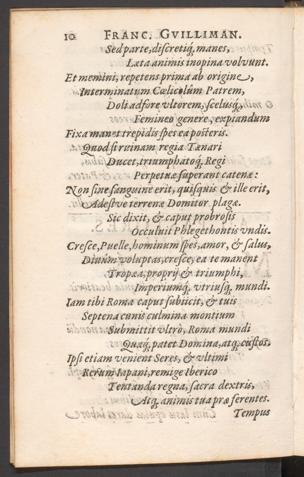 10 FRANC. GVILLIMAN.
Sed parte, discretiq́; manes,
Læta animis inopina volvunt.
Et memini, repetens prima ab origine,
Interminatum Cœlicolûm Patrem,
Doli adfore vltorem, scelusq́;
Femineo genere, expiandum
Fixa manet trepidis spes ea posteris.
Quod si ruinam regia Tænari
Ducet, triumphatoq́; Regi
Perpetuæ superant catenæ:
Non sine sanguine erit, quisquis & ille erit,
Adestve terrenæ Domitor plagæ.
Sic dixit, & caput probrosis
Occuluit Phlegethontis vndis.
Cresce, Puelle, hominum spes, amor, & salus,
Divûm voluptas, cresce, ea te manent
Tropæa, proprij & triumphi,
Imperiumq́; vtriusq́; mundi.
Iam tibi Roma caput subiicit, & tuis
Septena cunis culmina montium
Submittit vltrò, Roma mundi
Quaq́; patet Domina, atq́; custos.
Ipsi etiam venient Seres, & vltimi
Rerum Iapani, remige Iberico
Tentanda regna, sacra dextris,
Atq́; animis tua præferentes.
Tempus